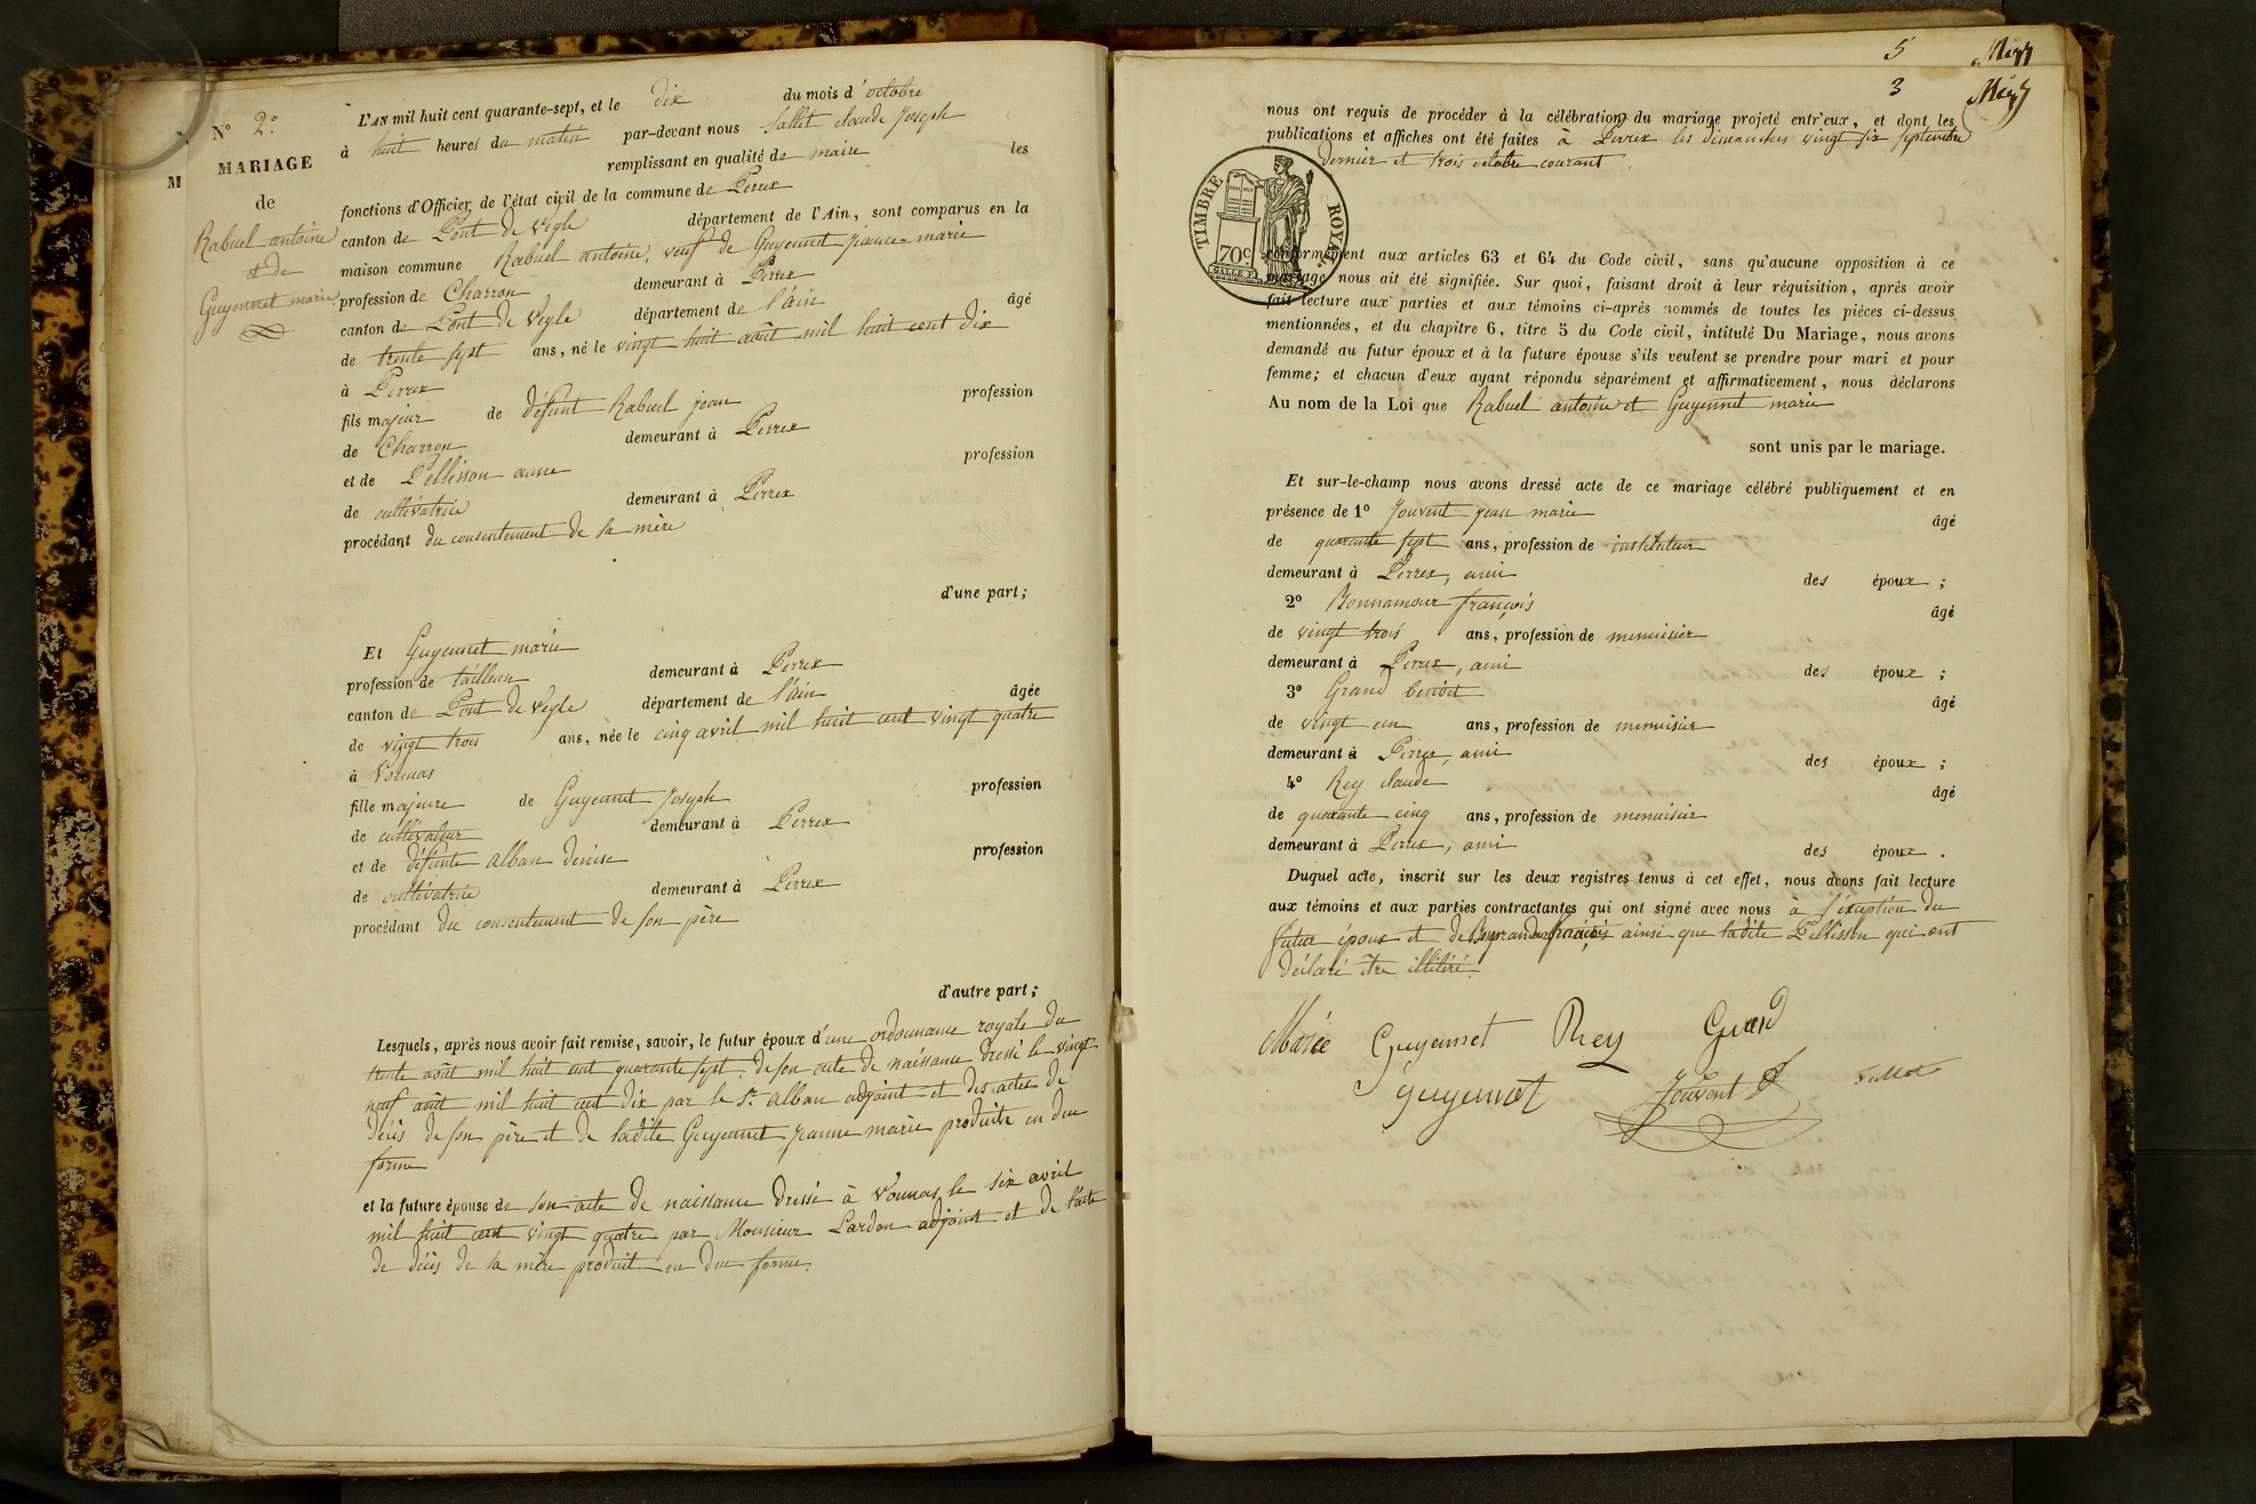 N° 2°.
MARIAGE
de
Rabuel antoine
et de
Guyennet marie
M
L'AN mil huit cent quarante-sept, et le dix du mois d'octobre
à huit heures du matin par-devant nous Sallet claude Joseph
remplissant en qualité de maire les
fonctions d'Officier de l'état civil de la commune de Perrex
canton de Pont de Vegle département de l'Ain, sont comparus en la
maison commune Rabuel antoine, veuf de Guyennet jeanne-marie
profession de Charron demeurant à Perrex
canton de Pont de Vegle département de l'ain âgé
de trente sept ans, né le vingt huit août mil huit cent dix
à Perrex
fils majeur de défunt Rabuel jean profession
de Charron demeurant à Perrex
et de Pellisson anne profession
de cultivatrice demeurant à Perrex
procédant du consentement de sa mère
d'une part;
Et Guyennet marie
profession de tailleur demeurant à Perrex
canton de Pont de Vegle département de l'ain âgée
de vingt trois ans, née le cinq avril mil huit cent vingt quatre
à Vonnas
fille majeure de Guyennet Joseph profession
de cultivateur demeurant à Perrex
et de défunte alban denise profession
de cultivatrice demeurant à Perrex
procédant du consentement de son père
d'autre part;
Lesquels, après nous avoir fait remise, savoir, le futur époux d'une ordonnance royale du
trente août mil huit cent quarante sept. de son acte de naissance dressé le vingt
neuf août mil huit cent dix par le Sr. alban adjoint et des actes de
décès de son père et de ladite Guyennet jeanne marie produits en due
forme
et la future épouse de son acte de naissance dressé à Vonnas le six avril
mil huit cent vingt quatre par Monsieur Lardon adjoint et de l'acte
de décès de sa mère produit en due forme.
5
3
nous ont requis de procéder à la célébration du mariage projeté entr'eux, et dont les
publications et affiches ont été faites à Perrex les dimanches vingt six septembre
dernier et trois octobre courant
TIMBRE ROYAL
70c.
conformément aux articles 63 et 64 du Code civil, sans qu'aucune opposition à ce
mariage nous ait été signifiée. Sur quoi, faisant droit à leur réquisition, après avoir
fait lecture aux parties et aux témoins ci-après nommés de toutes les pièces ci-dessus
mentionnées, et du chapitre 6, titre 5 du Code civil, intitulé Du Mariage, nous avons
demandé au futur époux et à la future épouse s'ils veulent se prendre pour mari et pour
femme; et chacun d'eux ayant répondu séparément et affirmativement, nous déclarons
Au nom de la Loi que Rabuel antoine et Guyennet marie
sont unis par le mariage.
Et sur-le-champ nous avons dressé acte de ce mariage célébré publiquement et en
présence de 1° Jouvent jean marie âgé
de quarante sept ans, profession de instituteur
demeurant à Perrex, ami des époux;
2° Bonnamour françois âgé
de vingt trois ans, profession de menuisier
demeurant à Perrex, ami des époux;
3° Grand benoit âgé
de vingt un ans, profession de menuisier
demeurant à Perrex, ami des époux;
4° Rey claude âgé
de quarante cinq ans, profession de menuisier
demeurant à Perrex, ami des époux.
Duquel acte, inscrit sur les deux registres tenus à cet effet, nous avons fait lecture
aux témoins et aux parties contractantes qui ont signé avec nous à l'exception du
futur époux et de françois ainsi que ladite Pellisson qui ont
déclaré être illitéré.
Marie Guyennet Rey Grand
guyennet Jouvent Sallet